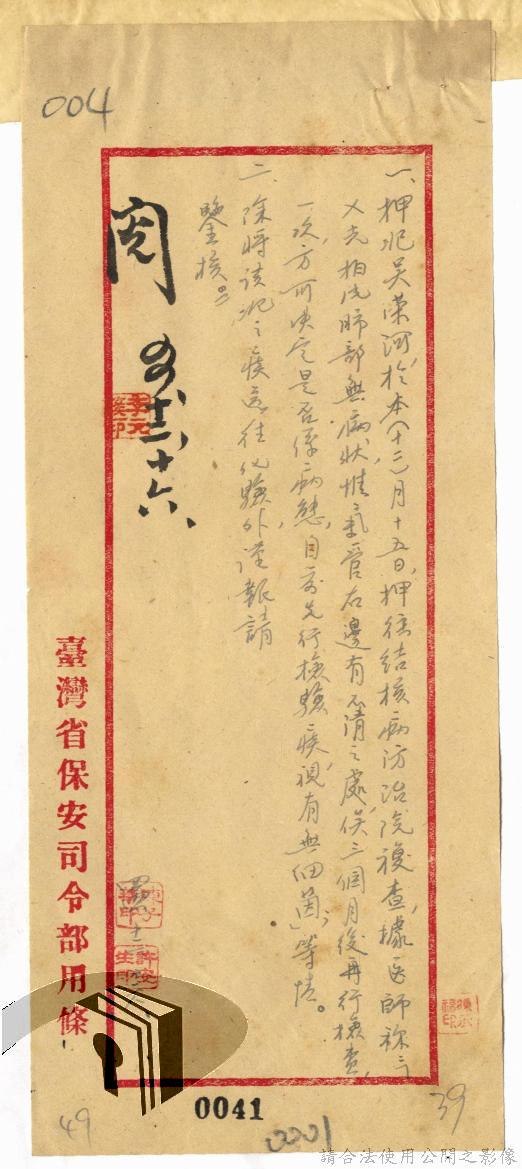 004
一、押犯吳榮河,於本(十二)月十五日,押往結核病防治院複查,據医師称:「
X光拍后肺部無病狀,惟氣管右邊有不清之處,俟三個月後再行檢查
一次,方可決定是否係病態,目前先行檢驗痰,視有無細菌」等情。
二、除將該犯之痰送往化驗外,謹報請
鑒核。
閱
十二、十六、
臺灣省保安司令部用條
0041
0001
49
39
請合法使用公開之影像